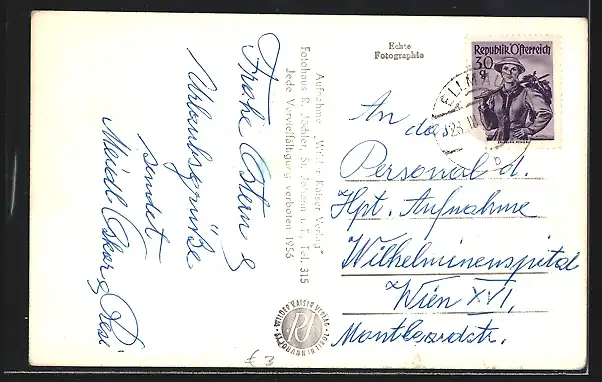 Echte
Fotographie
Republik Österreich
30
g
ELLM
23.
An das
Personal d.
Hpt. Aufnahme
Wilhelminenspital
Wien XVI,
Montleartstr.
Aufnahme „Wilder Kaiser Verlag"
Fotohaus R. Jöchler, St. Johann i. T. Tel. 315
Jede Vervielfältigung verboten 1956
Frohe Ostern &
Urlaubsgrüße
sendet
Meidl Oskar & Resi
WILDER KAISER VERLAG
ST. JOHANN IN TIROL
RJ
£ 3